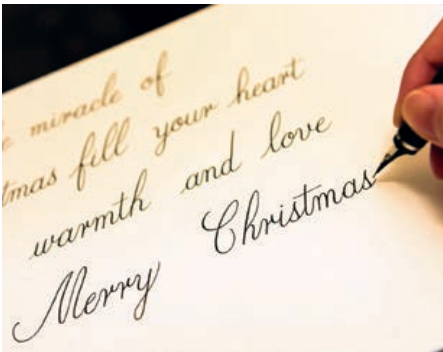 miracle of
tmas fill your heart
warmth and love
Merry Christmas